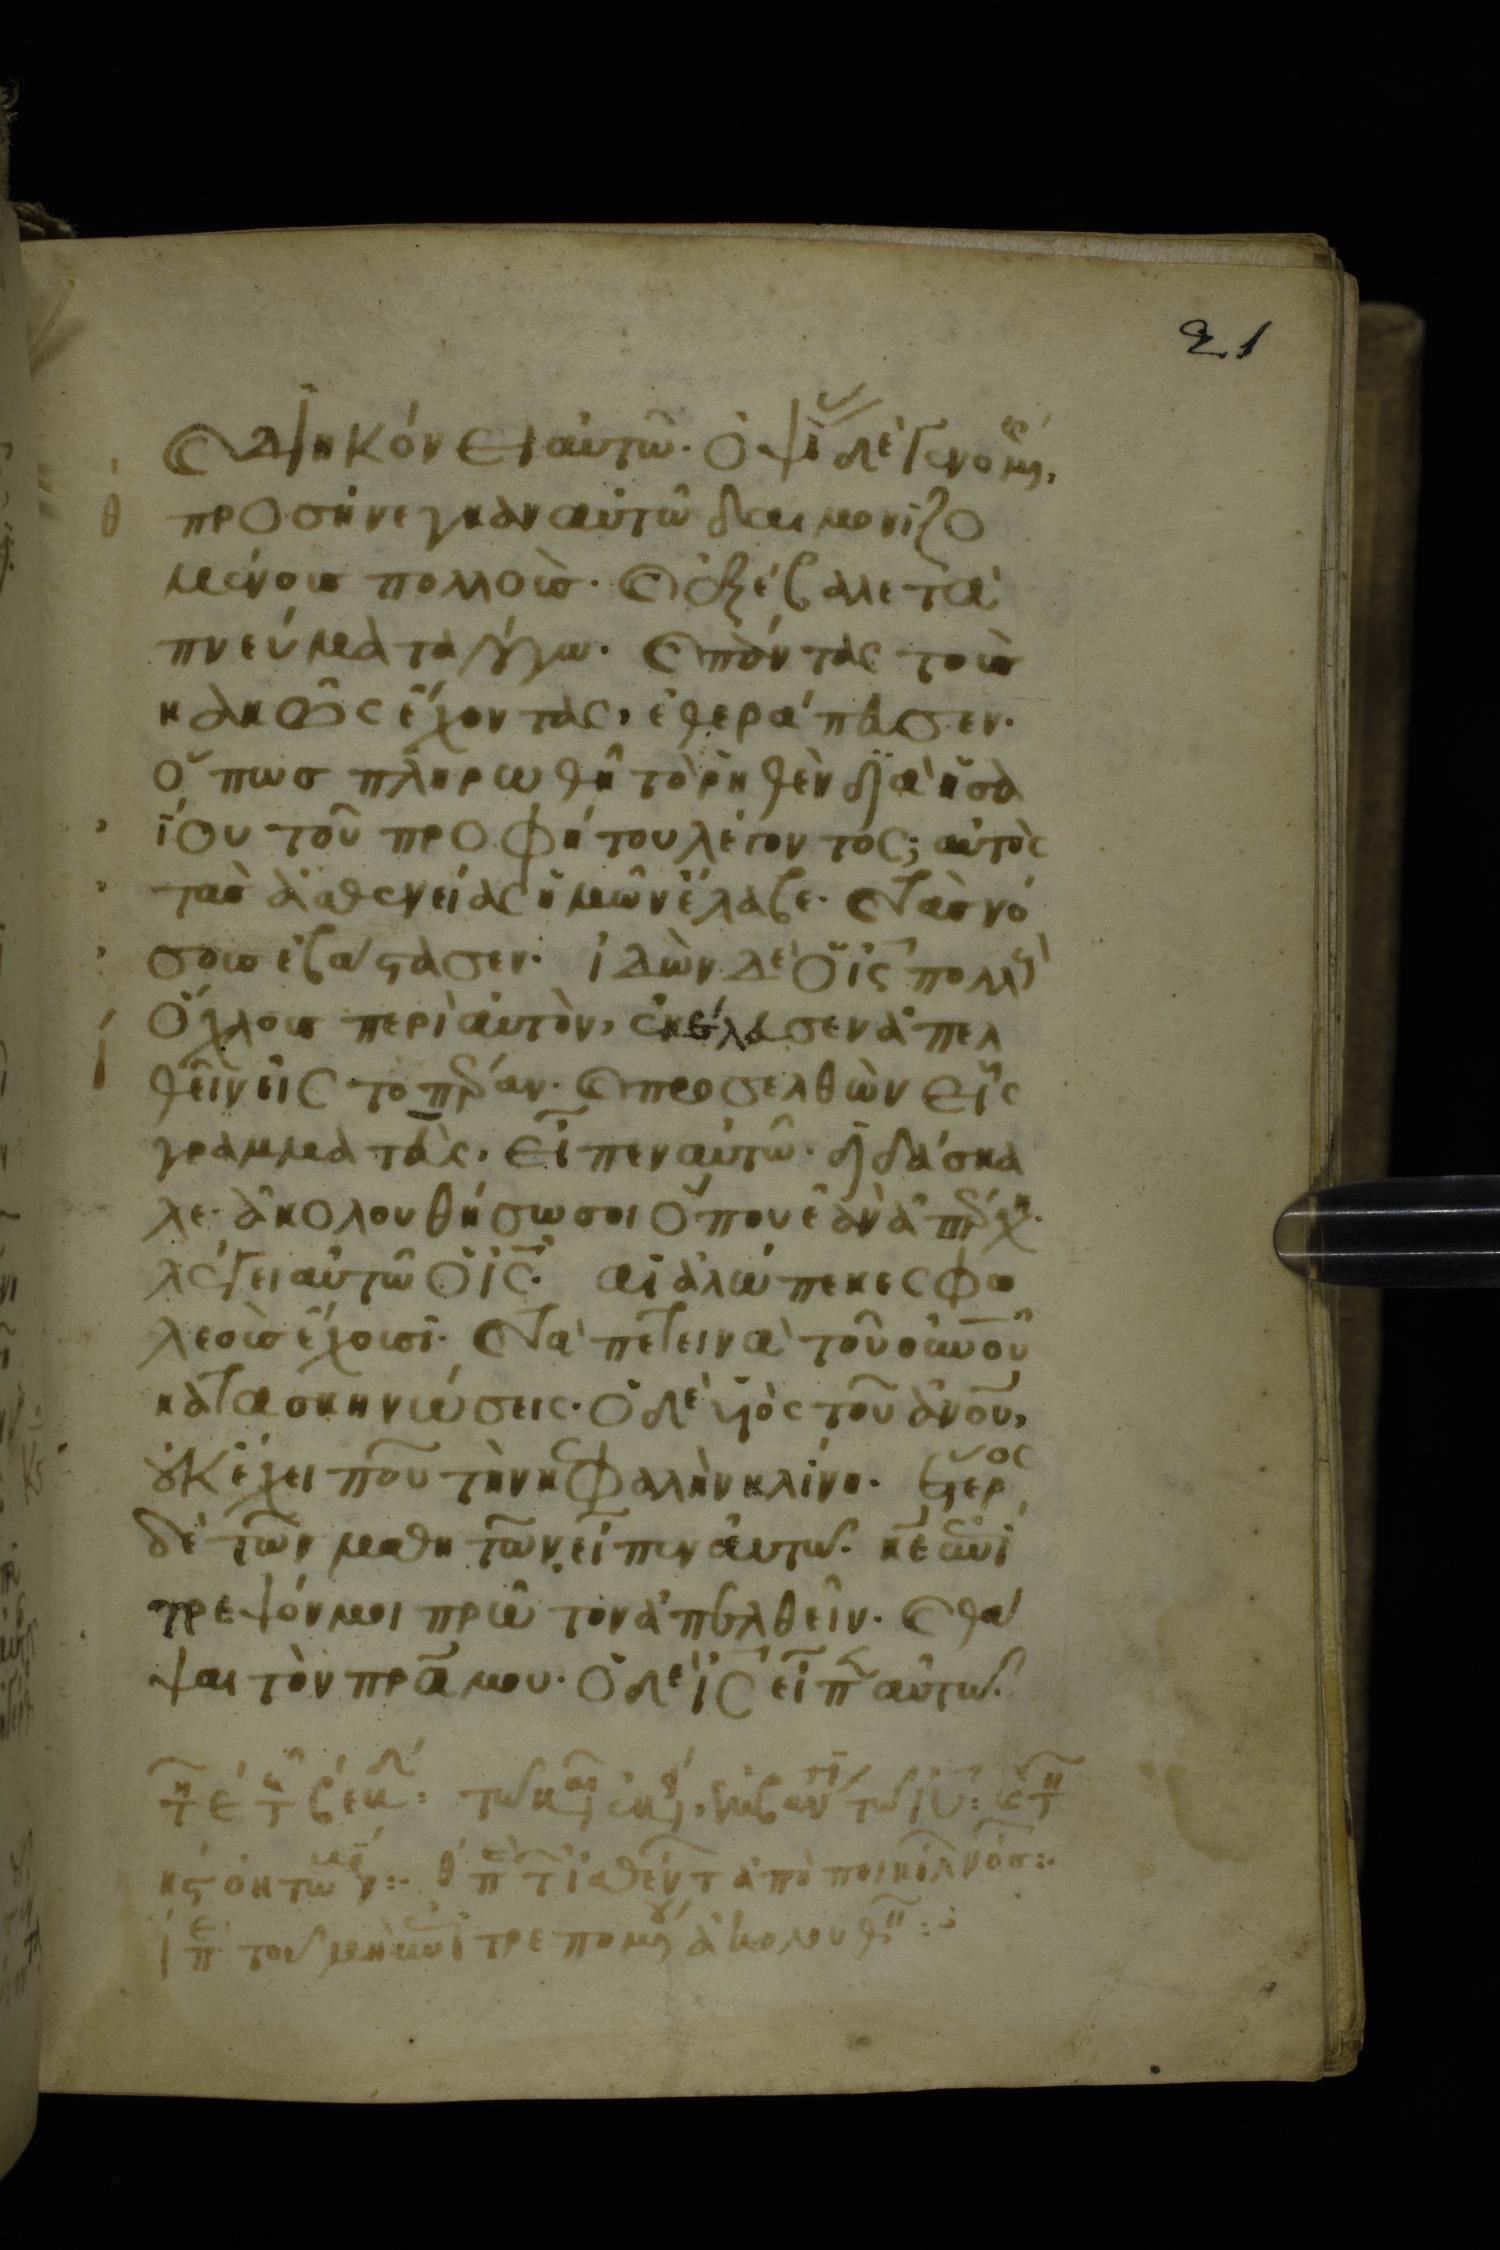 21
καὶ διηκόνει αὐτῶ· ὀψίας δὲ γενομένης,
θ προσήνεγκαν αὐτῶ δαιμονιζο
μένους πολλούς· καὶ ἐξέβαλε τὰ
πνεύματα λόγω· καὶ πάντας τοὺς
κακῶς ἔχοντας, ἐθεράπευσεν·
ὅπως πληρωθῆ τὸ ῥηθὲν διὰ ἡσα
ΐου τοῦ προφήτου λέγοντος; αὐτὸς
τὰς ἀσθενείας ἡμῶν ἔλαβε· καὶ τὰς νό
σους ἐβάστασεν· ἰδὼν δὲ ὁ ἰς πολλοὺς
ὄχλους περὶ αὐτὸν, ἐκέλευσεν ἀπελ
θεῖν εἰς τὸ πέραν· καὶ προσελθὼν εἷς
γραμματεὺς, εἶπεν αὐτῶ· διδάσκα
λε· ἀκολουθήσω σοι ὅπου ἐὰν ἀπέρχη·
λέγει αὐτῶ ὁ ἰς· αἱ ἀλώπεκες φω
λεοὺς ἔχουσι· καὶ τὰ πετεινὰ τοῦ οὐνοῦ
κατασκηνώσεις· ὁ δὲ υἱὸς τοῦ ἀνοῦ,
οὐκ ἔχει ποῦ τὴν κεφαλὴν κλίνη· ἕτερος
δὲ τῶν μαθητῶν εἶπεν αὐτῶ· κε ἐπί
τρεψόν μοι πρῶτον ἀπελθεῖν· καὶ θά
ψαι τὸν πρα μου· ὁ δὲ ἰς εἶπεν αὐτῶ·